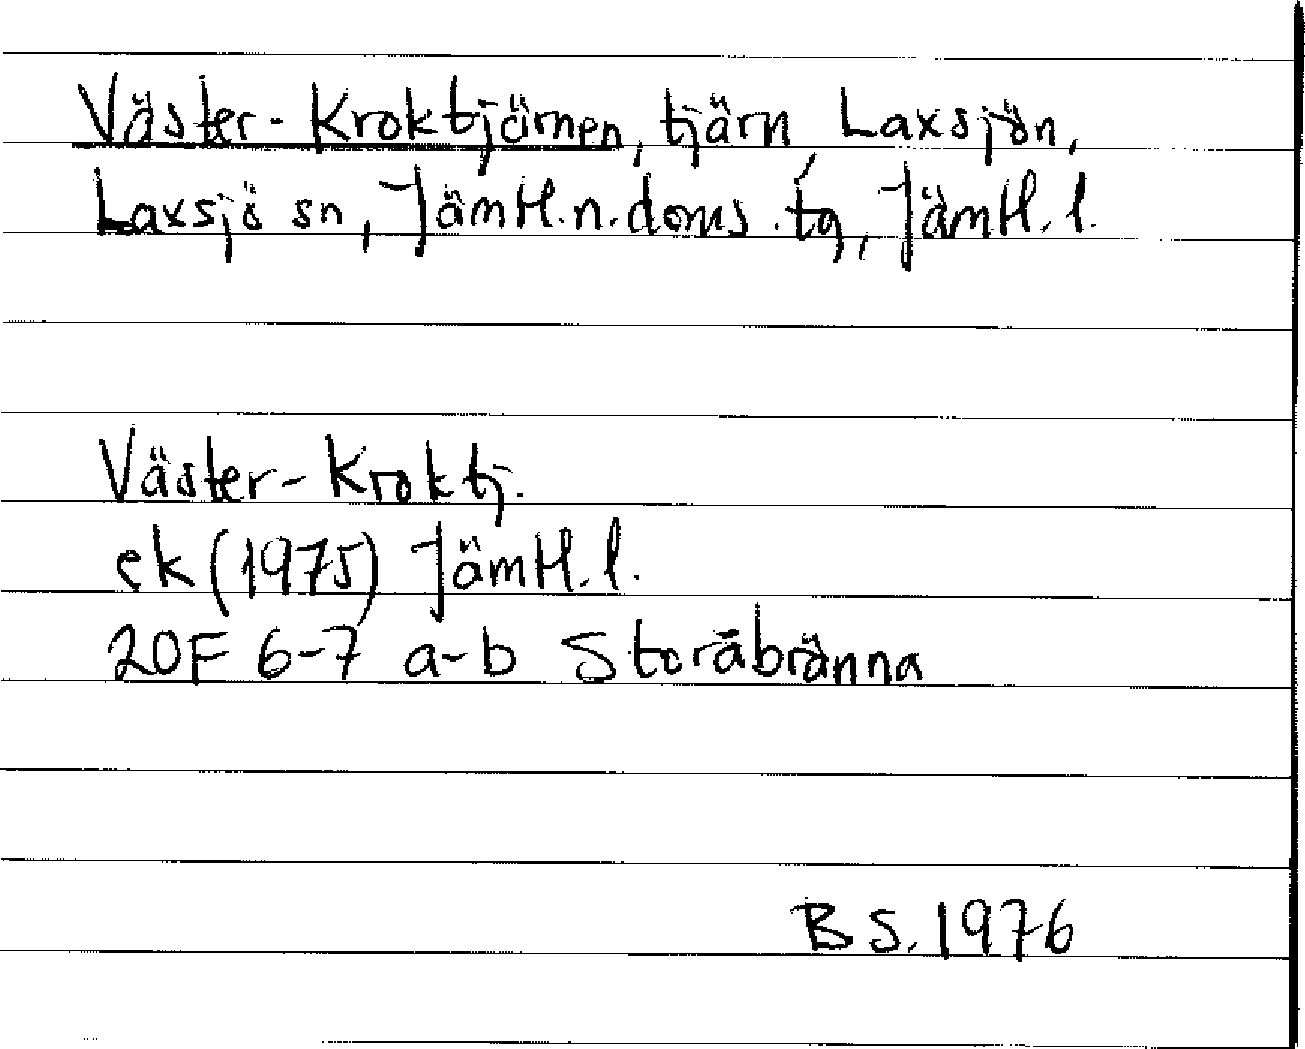 Väster-Kroktjärnen, tjärn, Laxsjön,
Laxsjö sn, Jämtl.n.doms.tg, Jämtl.l.
Väster-Kroktj.
ek (1975) Jämtl.l.
20F 6-7 a-b Storåbränna
BS. 1976